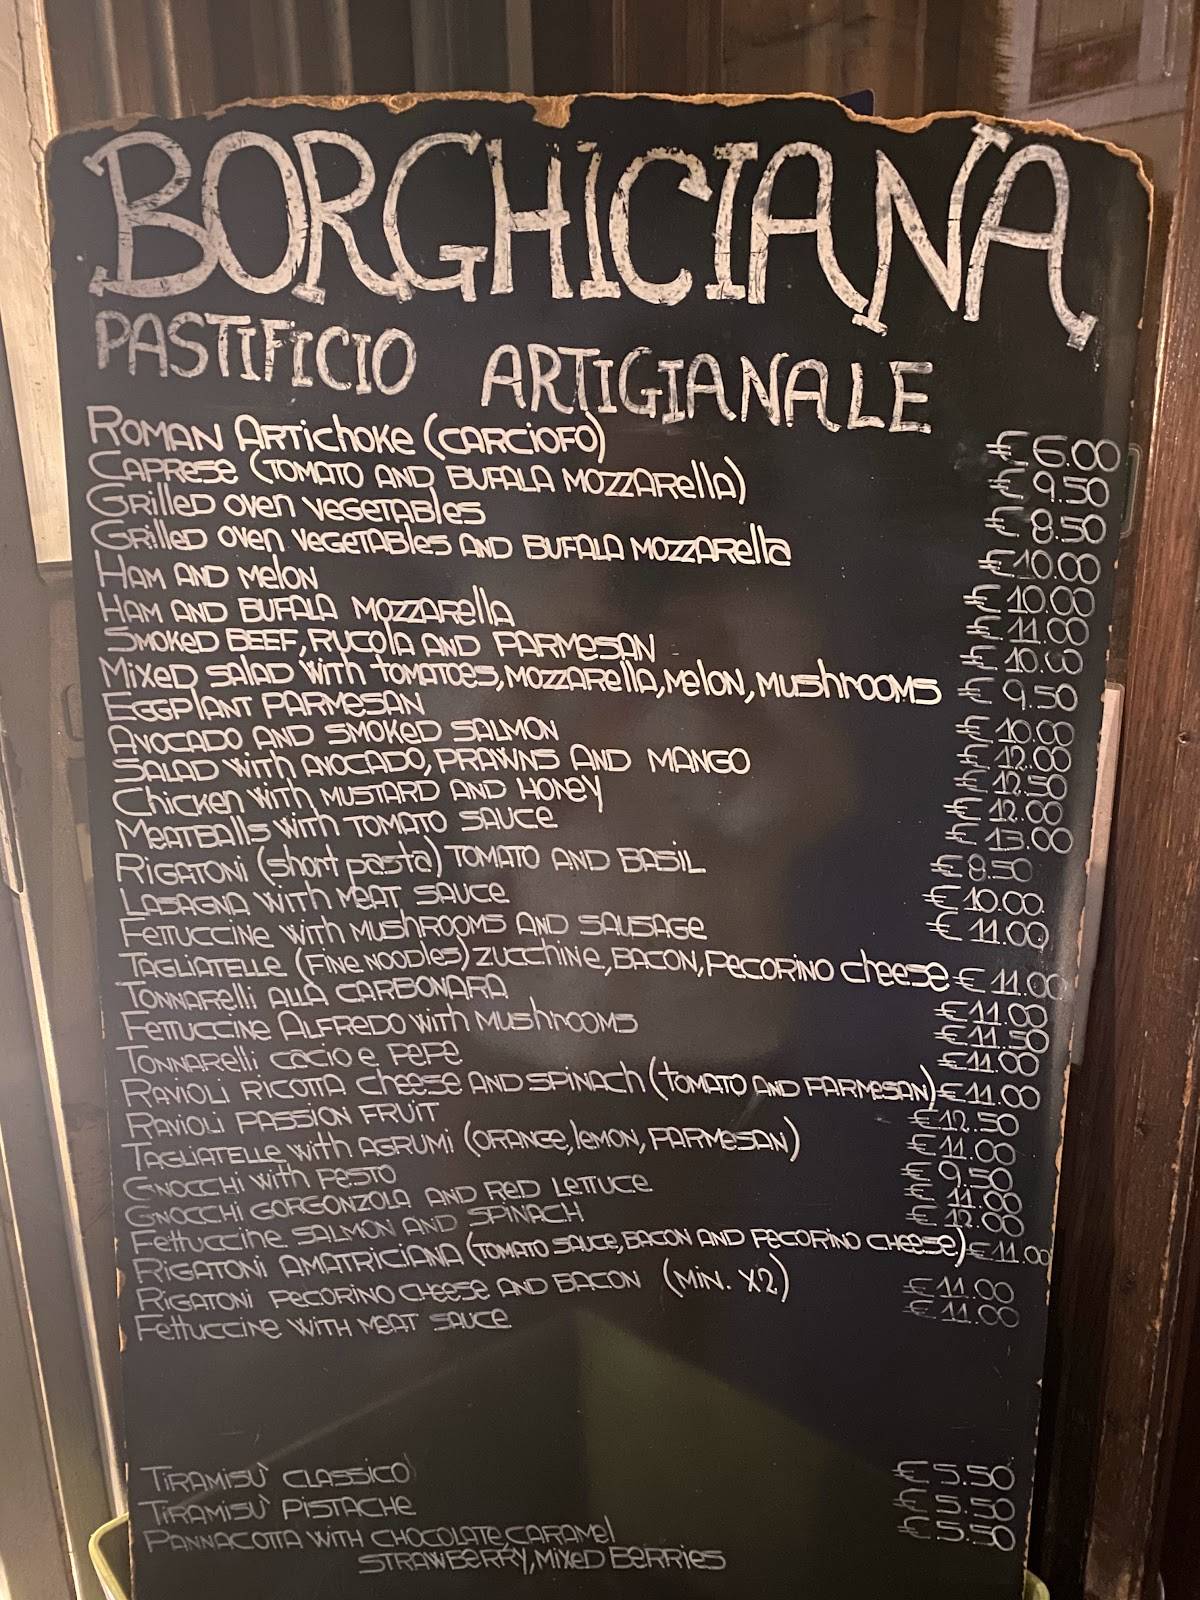 BORGHICIANA
PASTIFICIO ARTIGIANALE
ROMAN ARTICHOKE (CARCIOFO) € 6.00
CAPRESE (TOMATO AND BUFALA MOZZARELLA) € 9.50
GRILLED OVEN VEGETABLES € 8.50
GRILLED OVEN VEGETABLES AND BUFALA MOZZARELLA € 10.00
HAM AND MELON € 10.00
HAM AND BUFALA MOZZARELLA € 11.00
SMOKED BEEF, RUCOLA AND PARMESAN € 10.00
MIXED SALAD WITH TOMATOES, MOZZARELLA, MELON, MUSHROOMS € 9.50
EGGPLANT PARMESAN € 10.00
AVOCADO AND SMOKED SALMON € 12.00
SALAD WITH AVOCADO, PRAWNS AND MANGO € 12.50
CHICKEN WITH MUSTARD AND HONEY € 12.00
MEATBALLS WITH TOMATO SAUCE € 13.00
RIGATONI (short pasta) TOMATO AND BASIL € 8.50
LASAGNA WITH MEAT SAUCE € 10.00
FETTUCCINE WITH MUSHROOMS AND SAUSAGE € 11.00
TAGLIATELLE (FINE NOODLES) ZUCCHINE, BACON, PECORINO CHEESE € 11.00
TONNARELLI ALLA CARBONARA € 11.00
FETTUCCINE ALFREDO WITH MUSHROOMS € 11.50
TONNARELLI CACIO E PEPE € 11.00
RAVIOLI RICOTTA CHEESE AND SPINACH (TOMATO AND PARMESAN) € 11.00
RAVIOLI PASSION FRUIT € 12.50
TAGLIATELLE WITH AGRUMI (ORANGE, LEMON, PARMESAN) € 11.00
GNOCCHI WITH PESTO € 9.50
GNOCCHI GORGONZOLA AND RED LETTUCE € 11.00
FETTUCCINE SALMON AND SPINACH € 12.00
RIGATONI AMATRICIANA (TOMATO SAUCE, BACON AND PECORINO CHEESE) € 11.00
RIGATONI PECORINO CHEESE AND BACON (MIN. X2) € 11.00
FETTUCCINE WITH MEAT SAUCE € 11.00
TIRAMISÙ CLASSICO € 5.50
TIRAMISÙ PISTACHE € 5.50
PANNACOTTA WITH CHOCOLATE, CARAMEL € 5.50
STRAWBERRY, MIXED BERRIES